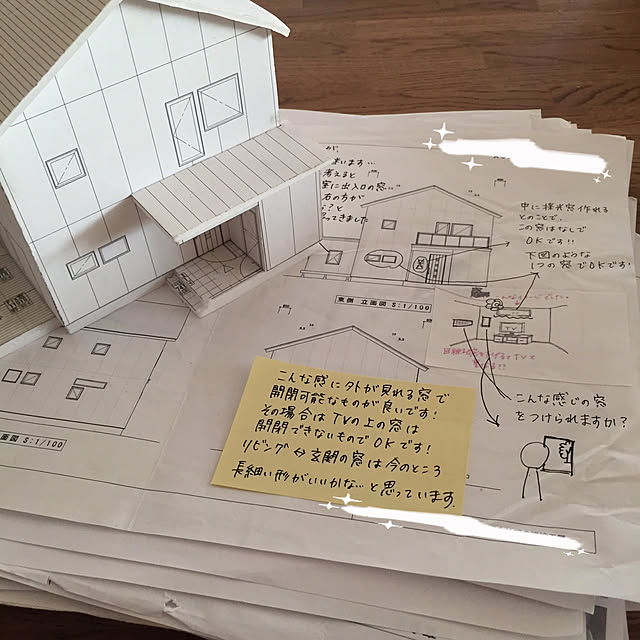 が、
来います…
考えると
室に出入口の窓…
右の方が
な？と
ってきました
中に採光窓作れる
とのことで、
この窓はなしで
OKです!!
下図のような
1つの窓でOKです!
東側 立面図 S:1/100
面図 S:1/100
こんな感じの窓
をつけられますか?
こんな感じに外が見れる窓で
開閉可能なものが良いです!
その場合はTVの上の窓は
開閉できないものでOKです!
リビング⇔玄関の窓は今のところ
長細い形がいいかな…と思っています.